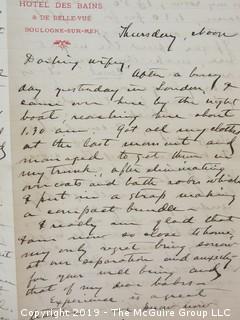 HÔTEL DES BAINS
& DE BELLE-VUE
BOULOGNE-SUR-MER
Thursday, Noon
Darling wifey,
After a busy
day yesterday in London, I
came over here by the night
boat, reaching here about
1.30 a.m. Got all my clothes
at the last moment and
managed to get them in
my trunk, after eliminating
overcoats and bath robe which
I put in a strap making
a compact bundle.
I really am glad that
I am now so close to home,
my only regret being sorrow
at our separation and anxiety
for your well being and
that of my dear babies.
Experience is a great
now
Copyright 2019 - The McGuire Group LLC